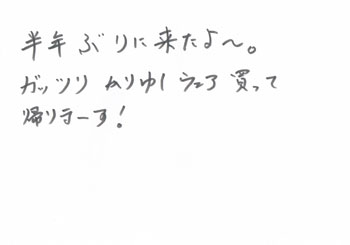 半年ぶりに来たよ〜。
ガッツリ かりゆしウェア 買って
帰りまーす!